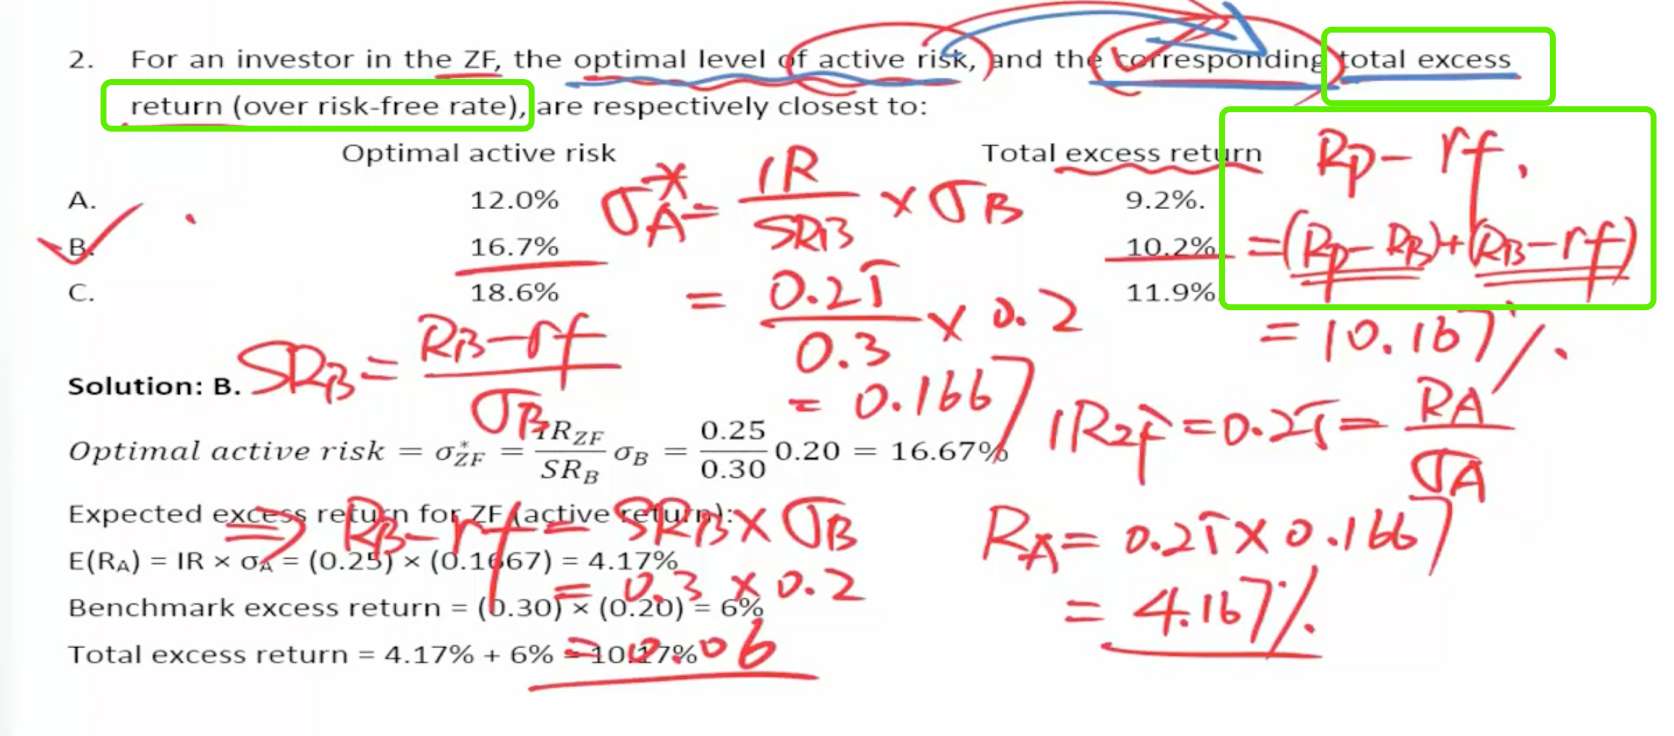 2. For an investor in the ZF, the optimal level of active risk, and the corresponding total excess
return (over risk-free rate), are respectively closest to:
Optimal active risk Total excess return
A. 12.0% 9.2%.
B. 16.7% 10.2%
C. 18.6% 11.9%
σA* = IR/SRB × σB
= 0.25/0.3 × 0.2
= 0.1667
Rp - rf.
= (Rp - RB) + (RB - rf)
= 10.167%.
SRB = RB - rf / σB
Solution: B.
Optimal active risk = σ*ZF = IRZF/SRB σB = 0.25/0.30 0.20 = 16.67%
IRZF = 0.25 = RA/σA
Expected excess return for ZF (active return):
E(RA) = IR × σA = (0.25) × (0.1667) = 4.17%
Benchmark excess return = (0.30) × (0.20) = 6%
Total excess return = 4.17% + 6% = 10.17%
⇒ RB - rf = SRB × σB
= 0.3 × 0.2
= 0.06
RA = 0.25 × 0.1667
= 4.167%.